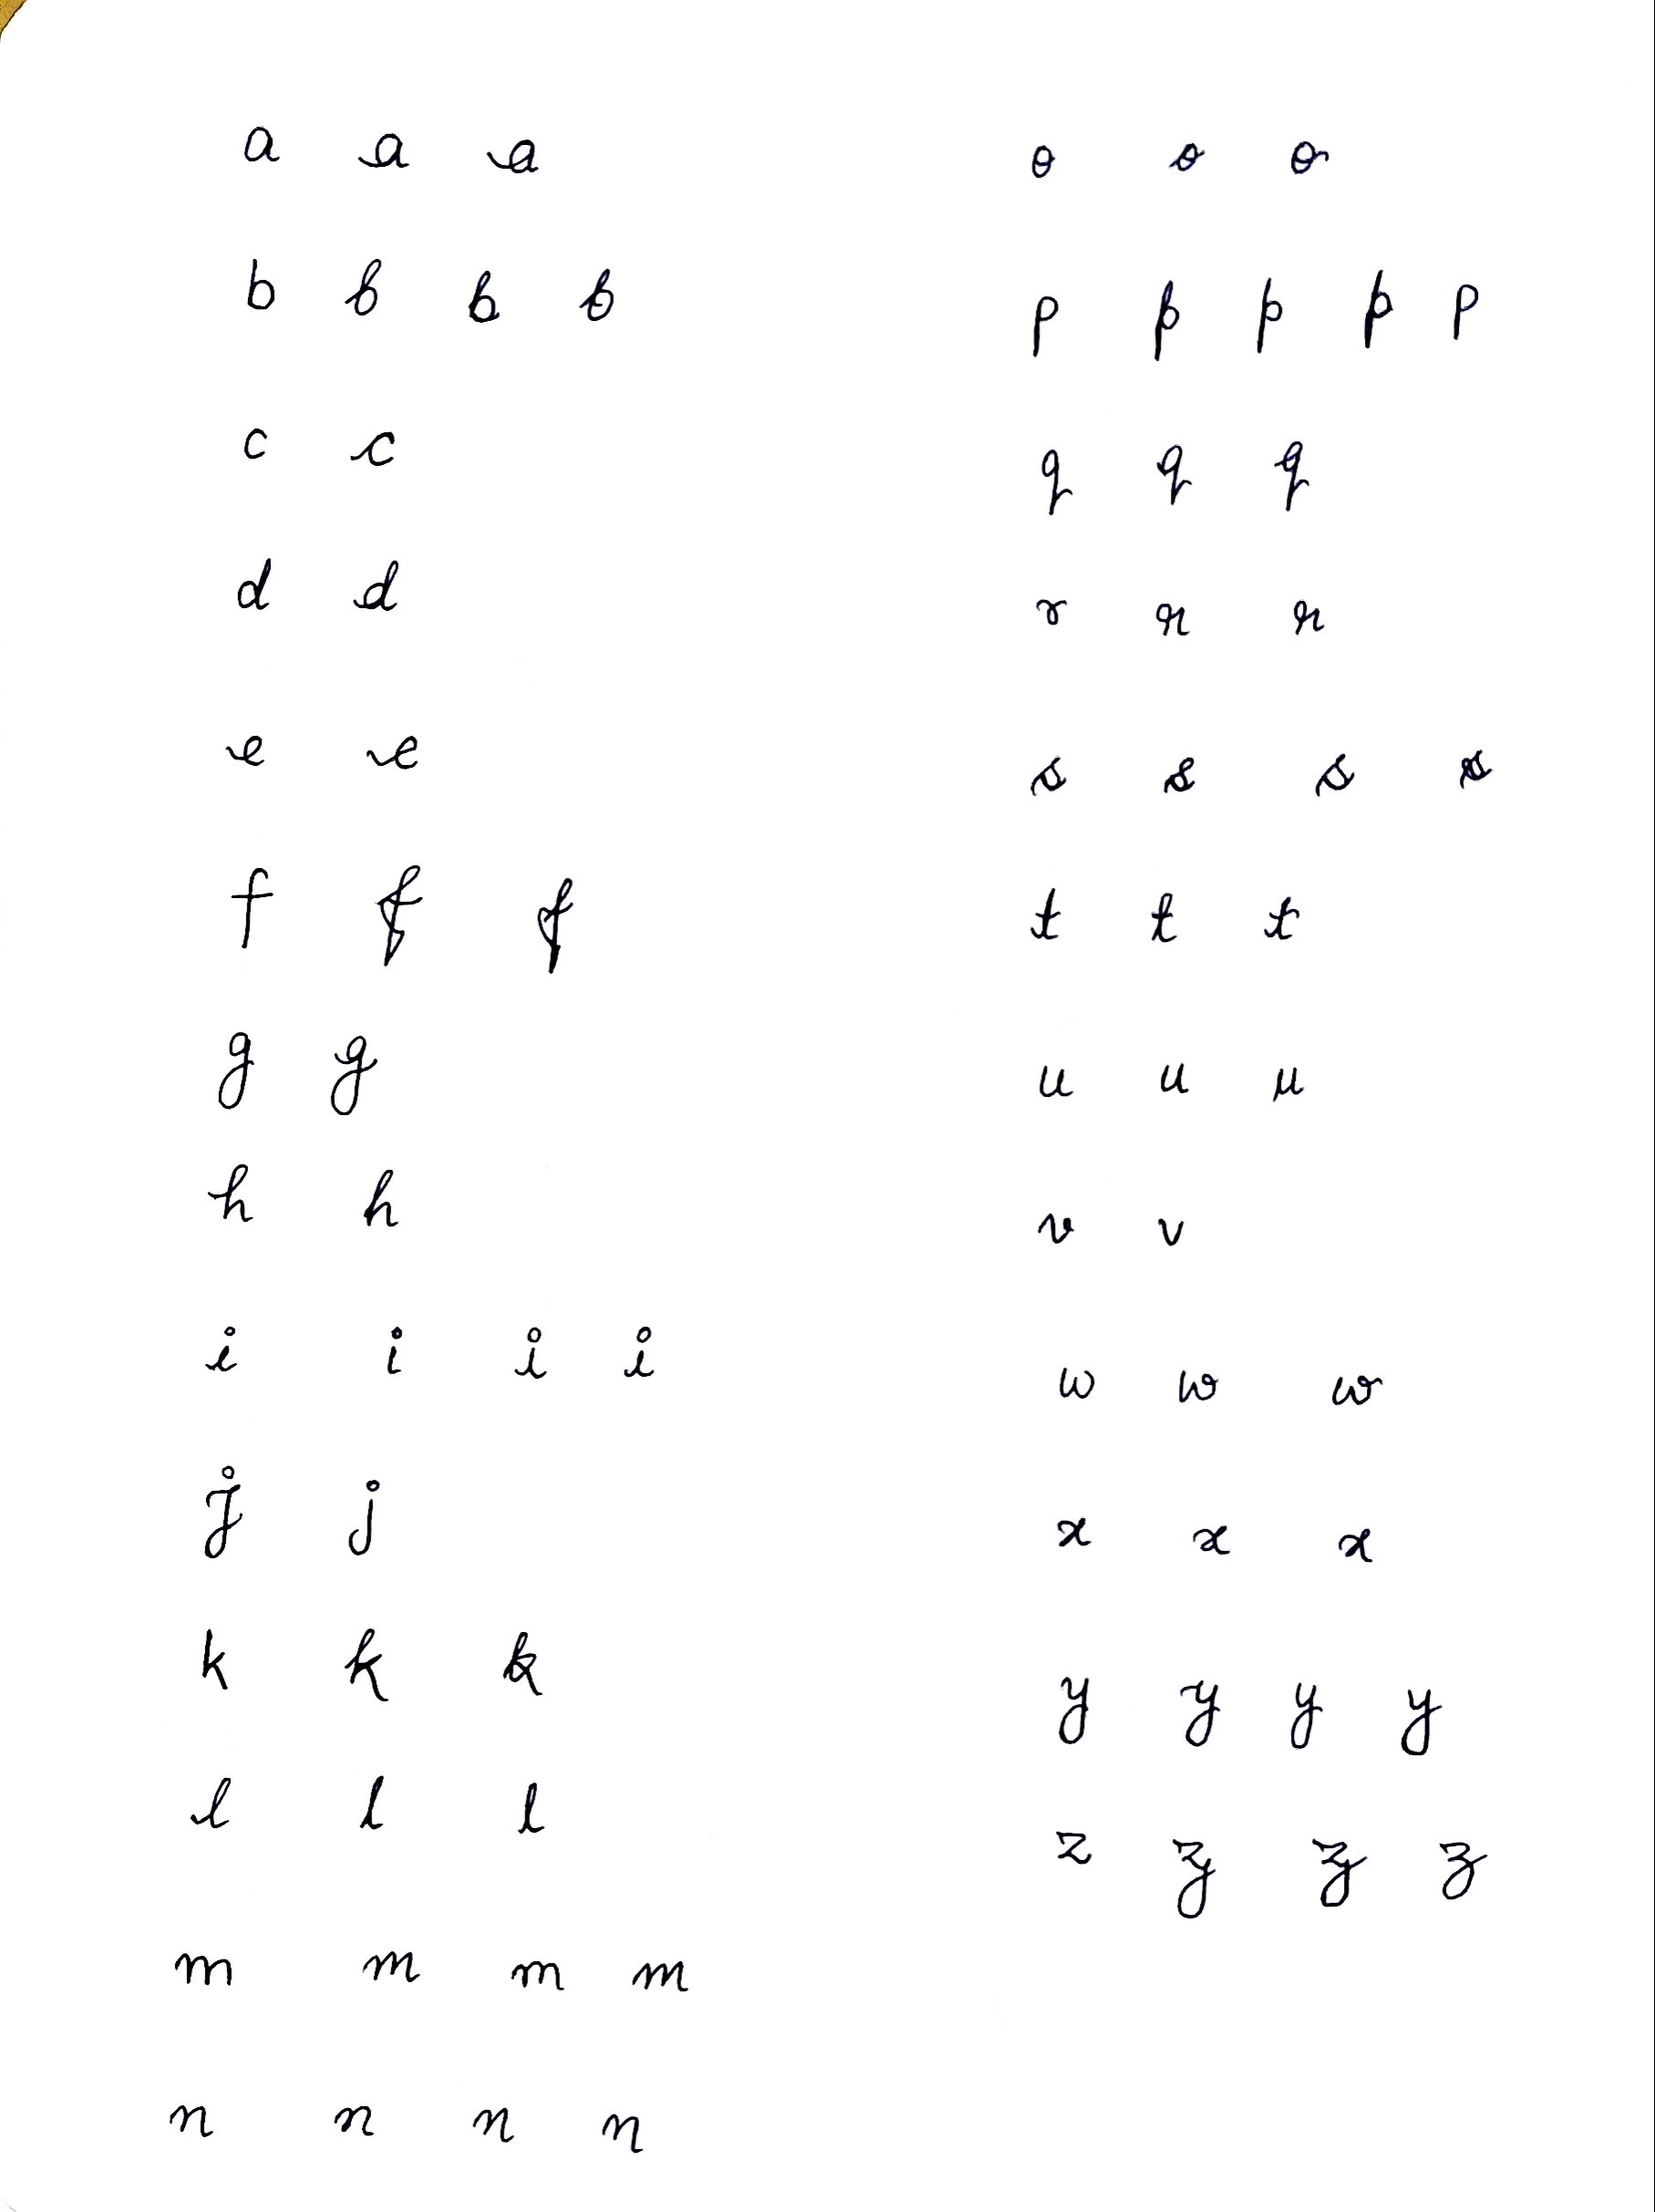 a a a
b b b b
c c
d d
e e
f f f
g g
h h
i i i i
j j
k k k
l l l
m m m m
n n n n
o o o
p p p p p
q q q
r r r
s s s s
t t t
u u u
v v
w w w
x x x
y y y y
z z z z